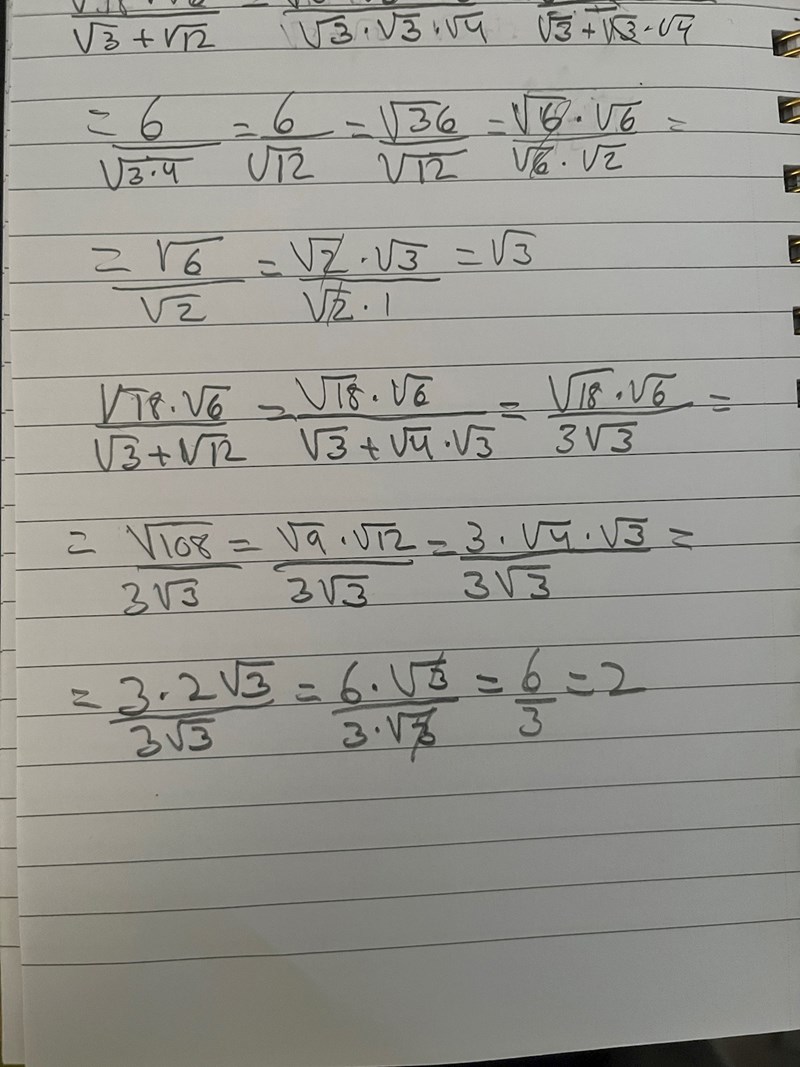 √3 + √12 √3 · √3 · √4 √3 + √3 · √4
= 6/√(3·4) = 6/√12 = √36/√12 = (√6 · √6)/(√6 · √2) =
= √6/√2 = (√2 · √3)/(√2 · 1) = √3
(√18 · √6)/(√3 + √12) = (√18 · √6)/(√3 + √4 · √3) = (√18 · √6)/(3√3) =
= √108/(3√3) = (√9 · √12)/(3√3) = (3 · √4 · √3)/(3√3) =
= (3 · 2√3)/(3√3) = (6 · √3)/(3 · √3) = 6/3 = 2